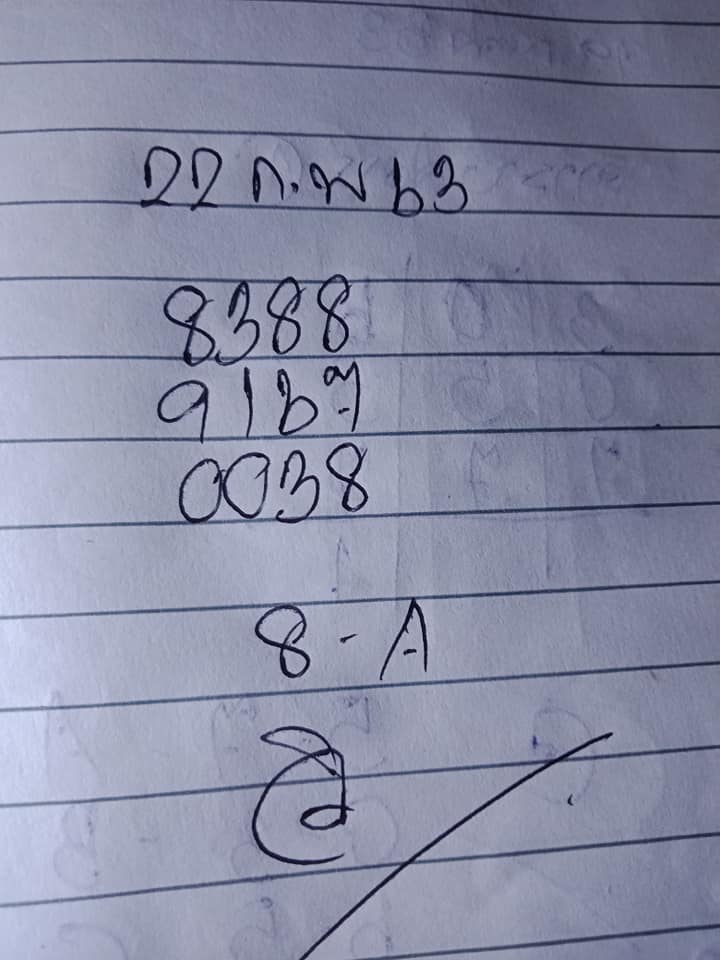 22 ก.พ 63
8388
9167
0038
8 - A